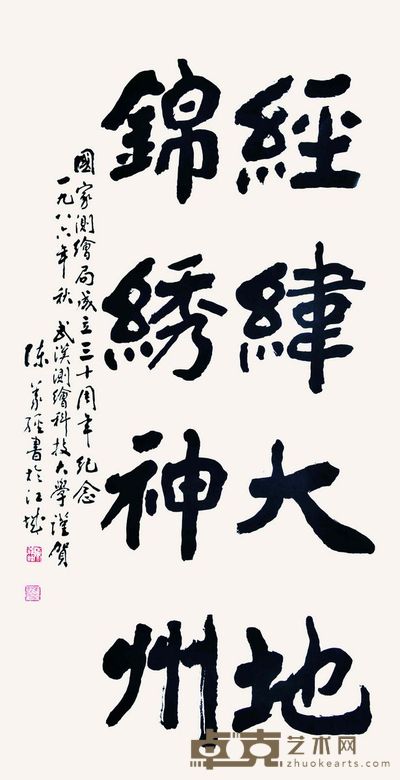 經緯大地
錦绣神州
國家測繪局成立三十周年纪念
一九八六年秋 武漢測繪科技大學謹賀
陈義經書於江城
卓克艺术网
zhuokearts.com